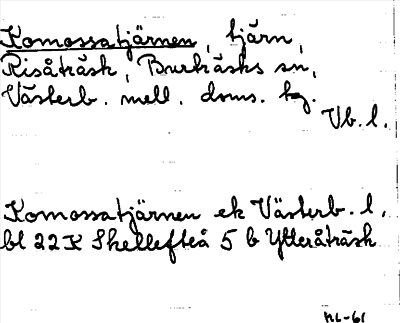 Komossatjärnen, tjärn,
Risåträsk, Burträsks sn,
Västerb. mell. doms. tg.
Vb. l.
Komossatjärnen ek Västerb. l,
bl 22K Skellefteå 5 b Ytteråträsk